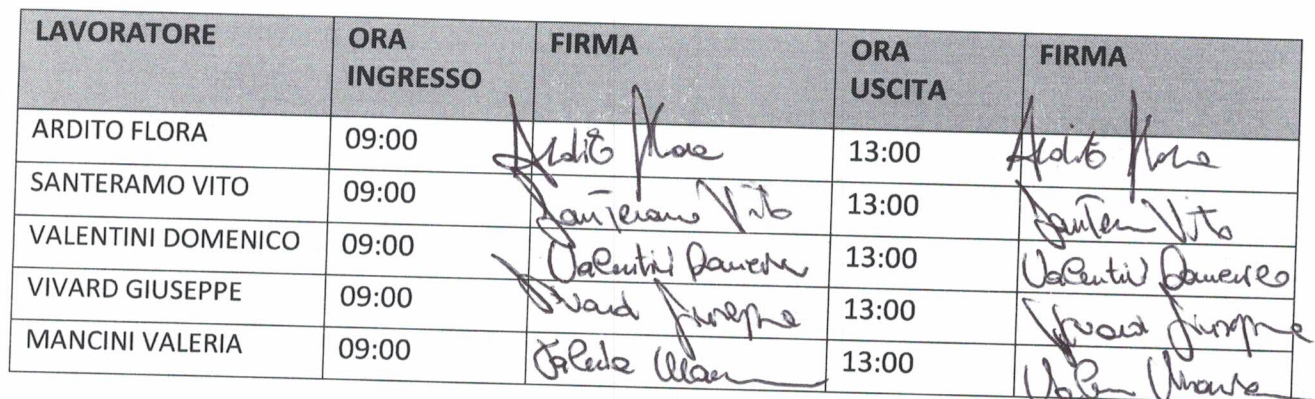 LAVORATORE ORA INGRESSO FIRMA ORA USCITA FIRMA
ARDITO FLORA 09:00 Ardito Flora 13:00 Ardito Flora
SANTERAMO VITO 09:00 Santeramo Vito 13:00 Vito
VALENTINI DOMENICO 09:00 Valentini 13:00 Valentini
VIVARD GIUSEPPE 09:00 Vivard Giuseppe 13:00 Vivard Giuseppe
MANCINI VALERIA 09:00 Valeria 13:00